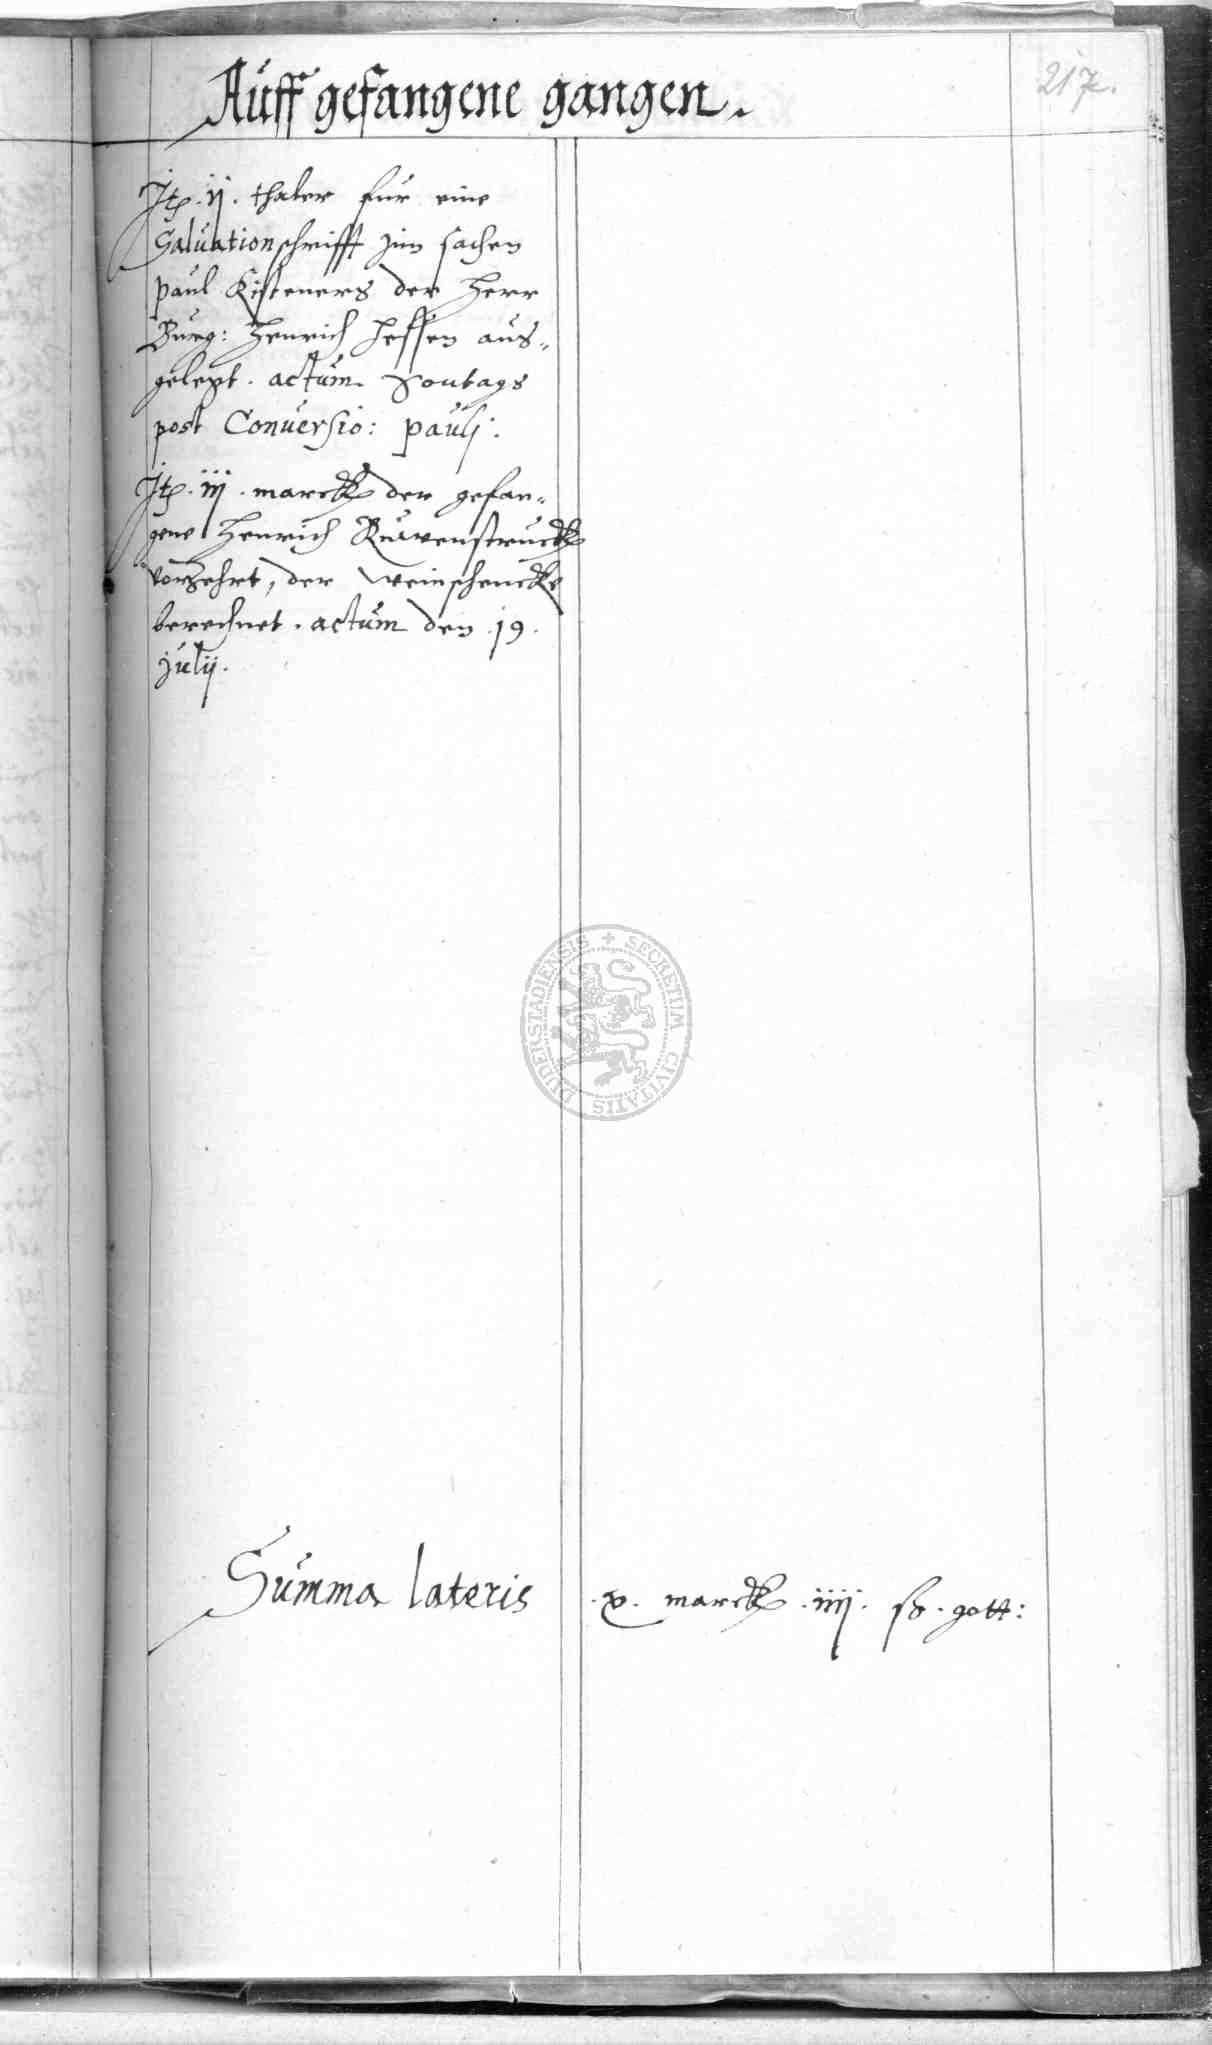 217.
Auff gefangene gangen.
Jtem .ij. thaler fur eine
Saluationschrifft jnn sachen
paul Kisteners der Herr
Burg: Henrich Hessen aus-
gelegt. actum Sontags
post Conuersio: paulj.
Jtem .iij. marck der gefan-
gene Henrich Ruwenstruck
vorzehrt, der weinschencke
berechnet. actum den .19.
julij.
Summa lateris .x. marck .iiij. ß. gott:
DUDERSTADIENSIS + SECRETUM CIVITATIS